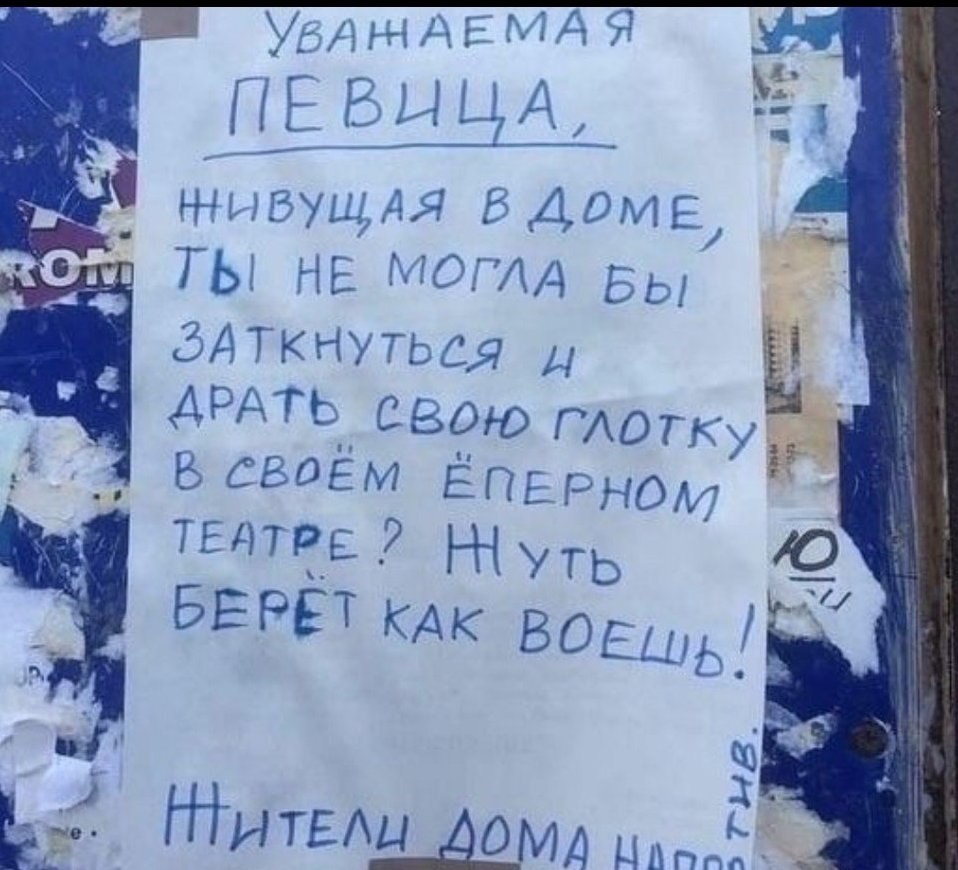 УВАЖАЕМАЯ
ПЕВИЦА,
ЖИВУЩАЯ В ДОМЕ,
ТЫ НЕ МОГЛА БЫ
ЗАТКНУТЬСЯ И
ДРАТЬ СВОЮ ГЛОТКУ
В СВОЁМ ЁПЕРНОМ
ТЕАТРЕ? ЖУТЬ
БЕРЁТ КАК ВОЕШЬ!
ЖИТЕЛИ ДОМА НАПРОТИВ.
КОМ
Ю